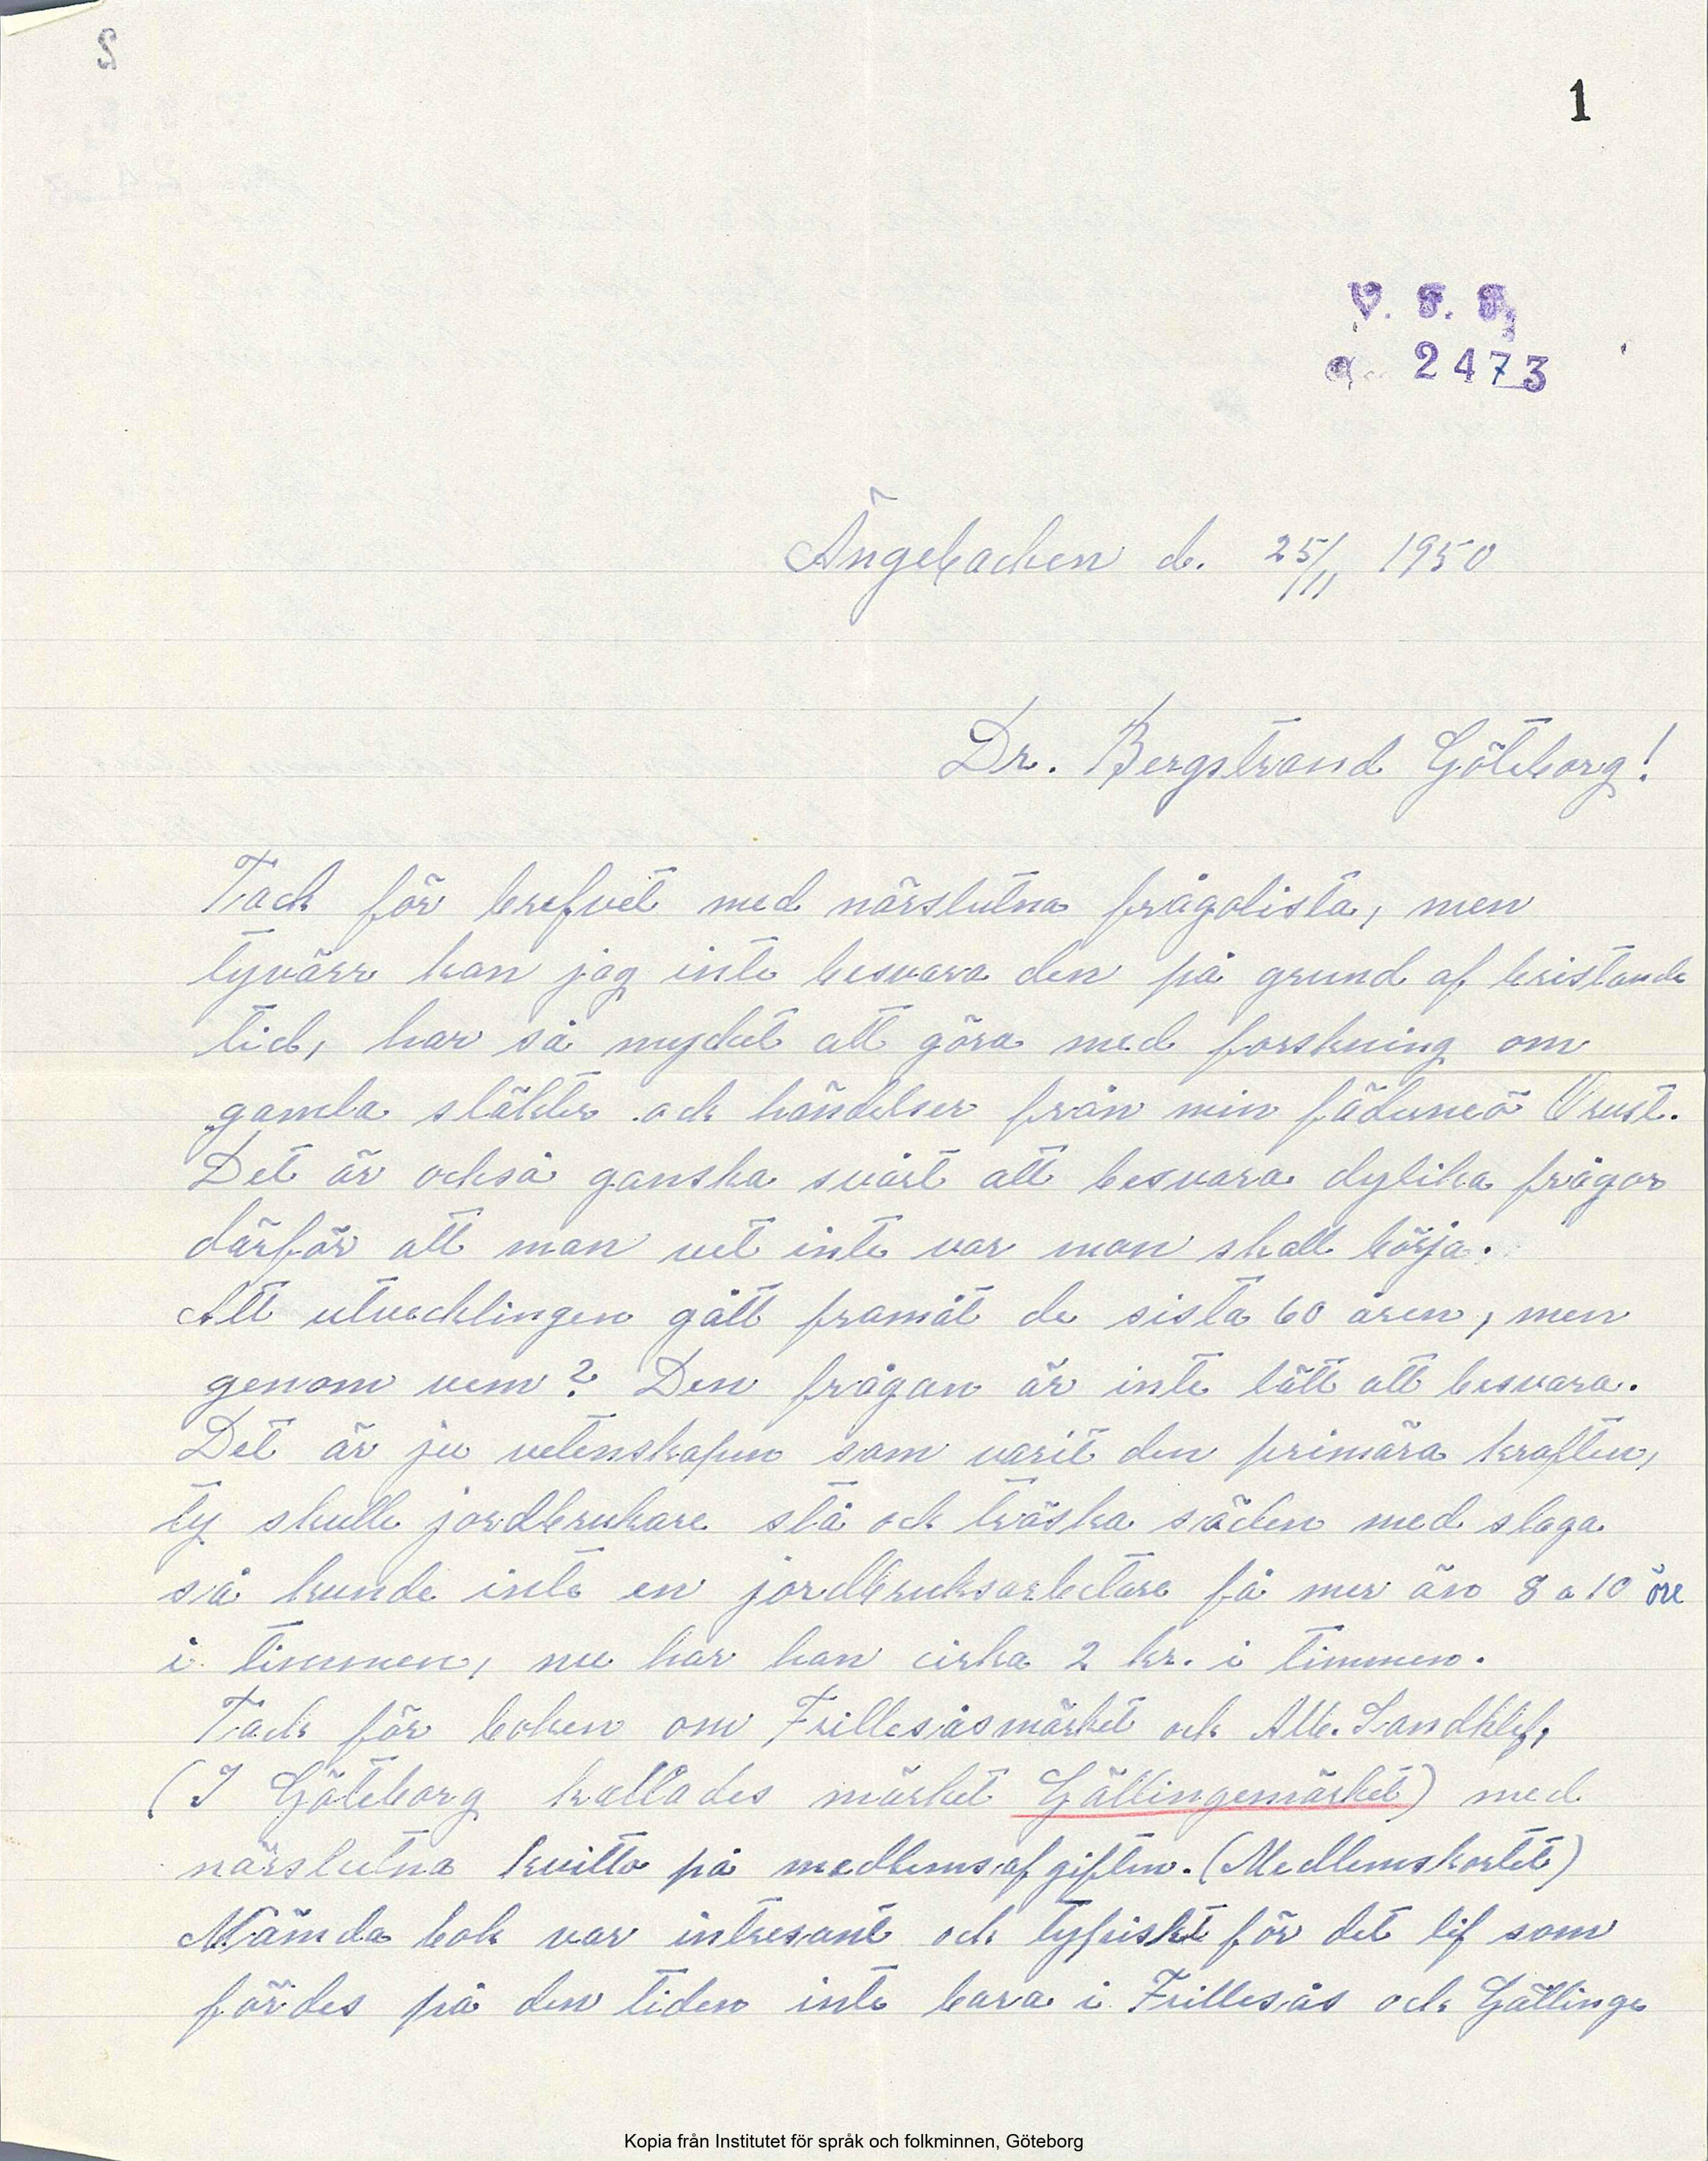 1
V. F. F.
q. 2473
Ängebacken d. 25/11 1950
Dr. Bergstrand Göteborg!
Tack för brefvet med närslutna frågolista, men
tyvärr kan jag inte besvara den på grund af bristande
tid, har så mycket att göra med forskning om
gamla släkter och händelser från min fäderneö Orust.
Det är också ganska svårt att besvara dylika frågor
därför att man vet inte var man skall börja.
Att utvecklingen gått framåt de sista 60 åren, men
genom vem? Den frågan är inte lätt att besvara.
Det är ju vetenskapen som varit den primära kraften,
ty skulle jordbrukare stå och tröska säden med slaga
så kunde inte en jordbruksarbetare få mer än 8 a 10 öre
i timmen, nu har han cirka 2 kr. i timmen.
Tack för boken om Frillesåsmärket och Alb. Sandklef,
(I Göteborg kallades märket Gällingemärket) med
närslutna kvitto på medlemsafgiften. (Medlemskortet)
Nämda bok var intresant och typiskt för det lif som
fördes på den tiden inte bara i Frillesås och Gällinge
Kopia från Institutet för språk och folkminnen, Göteborg